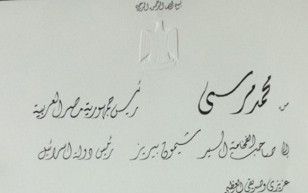 بسم الله الرحمن الرحيم
من محمد مرسي رئيس جمهورية مصر العربية
إلى صاحب الفخامة السيد شيمون بيريز رئيس دولة إسرائيل
عزيزي وصديقي العظيم